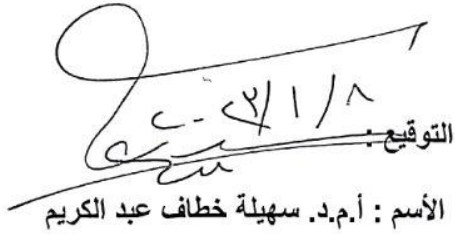 ٢٠٢٣/١/٨
التوقيع :
الأسم : أ.م.د. سهيلة خطاف عبد الكريم